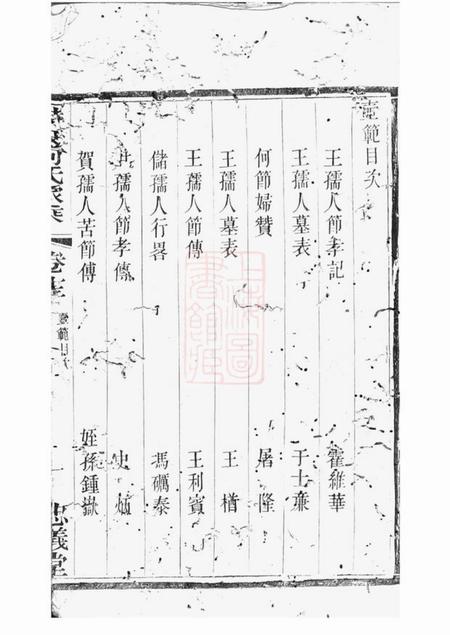 壼範目次
王孺人節孝記 霍維華
王孺人墓表 于士廉
何節婦贊 屠隆
王孺人墓表 王楢
王孺人節傳 王利賓
儲孺人行畧 馮礪泰
孺人節孝傳 史
賀孺人苦節傳 姪孫鍾嶽
氏家乘 卷 壼範目次 忠義堂
上海圖書館藏